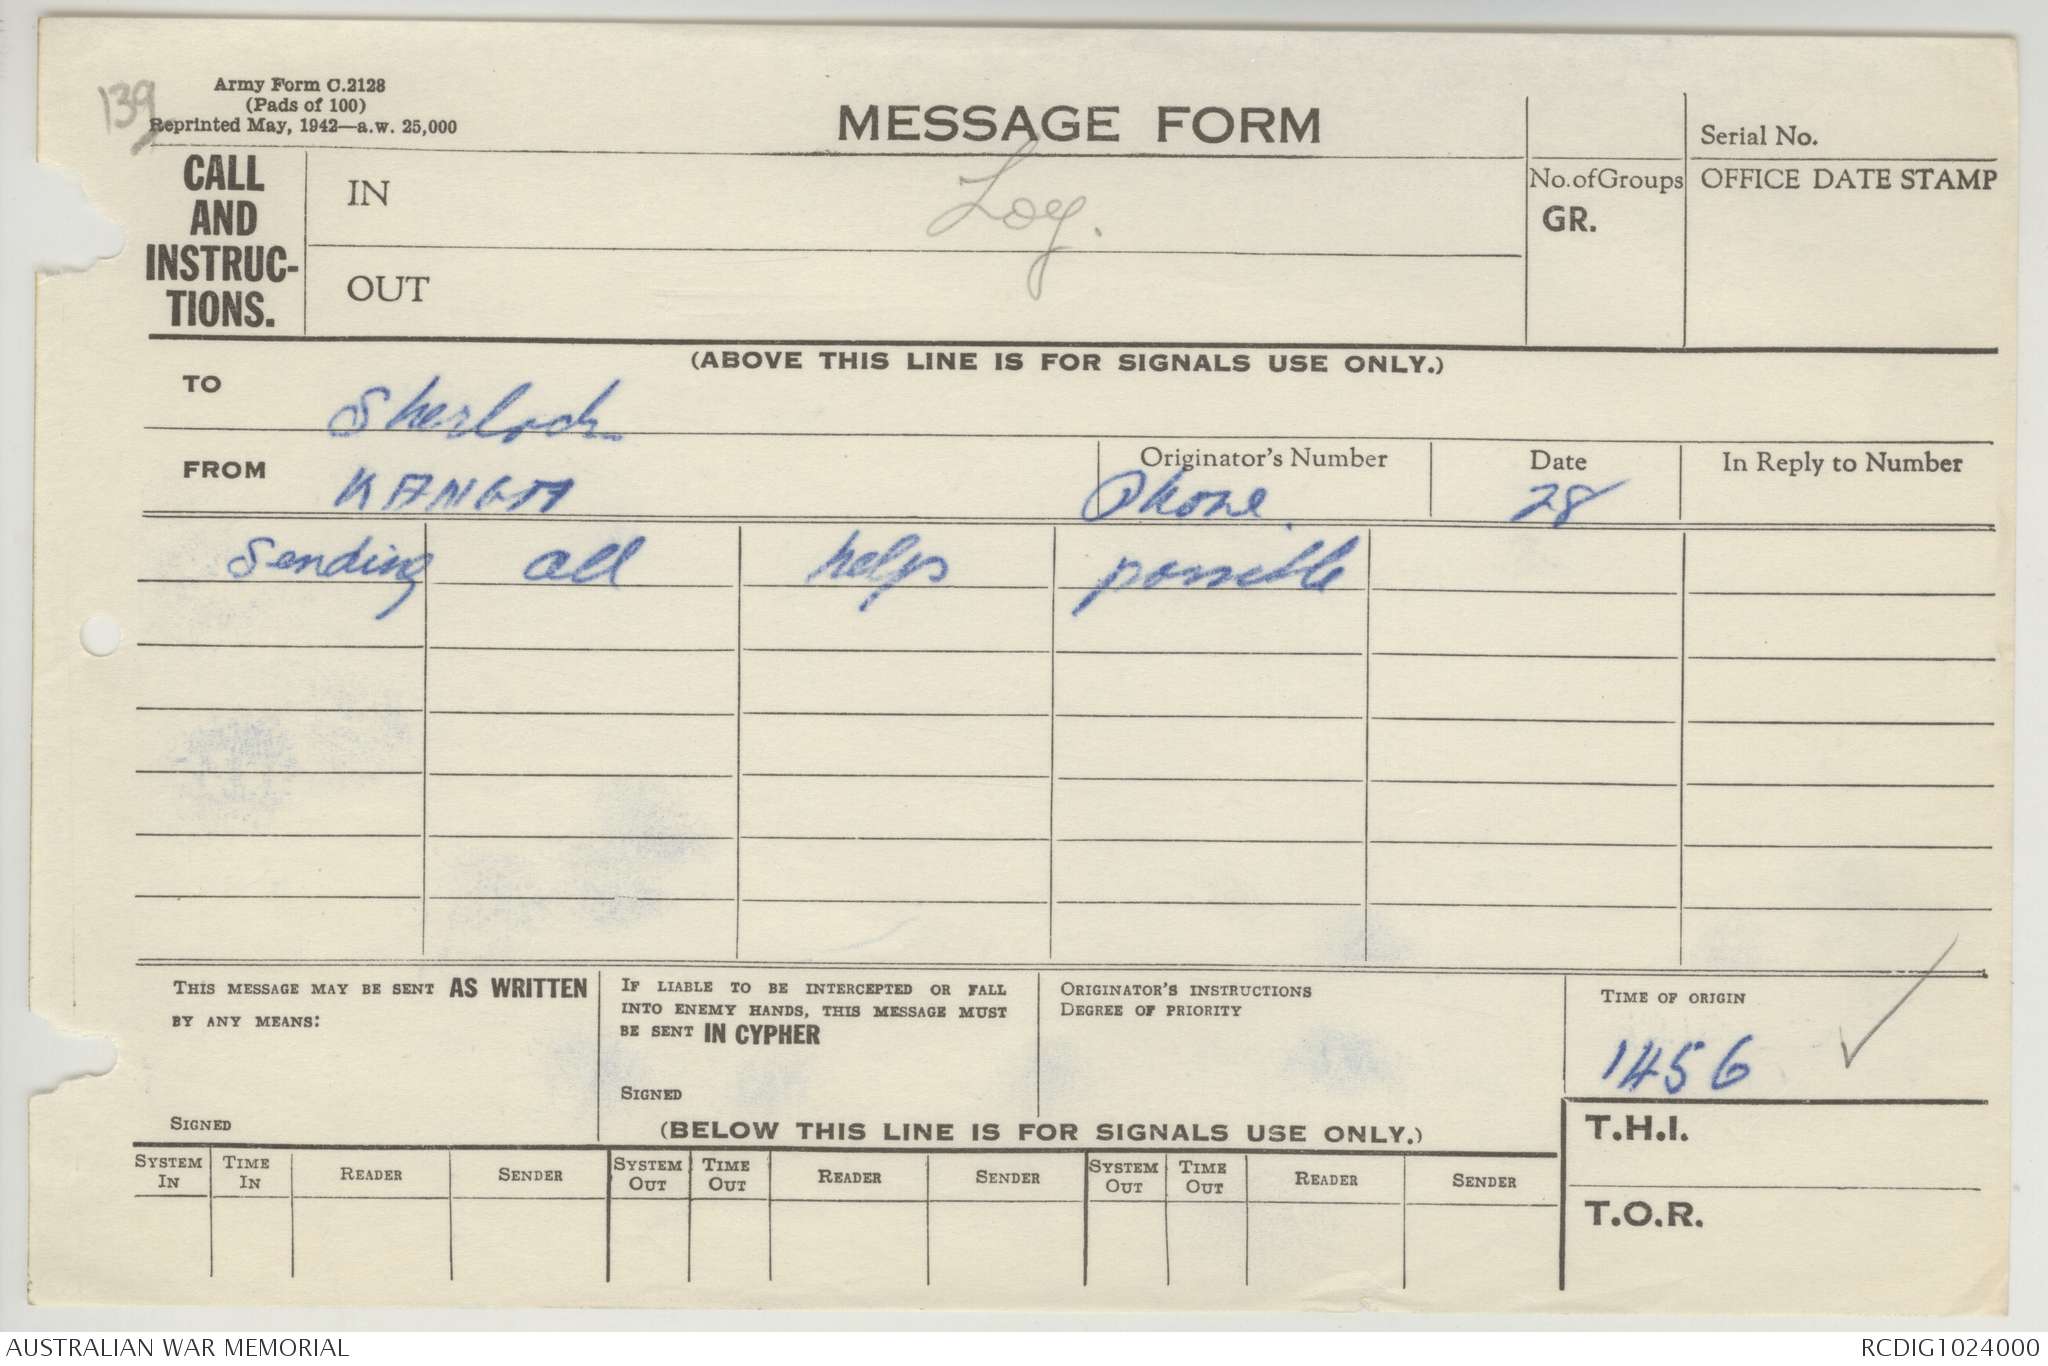 139
Army Form C.2128
(Pads of 100)
Reprinted May, 1942—a.w. 25,000
MESSAGE FORM
Serial No.
CALL
AND
INSTRUC-
TIONS.
IN
Log.
OUT
No. of Groups
GR.
OFFICE DATE STAMP
(ABOVE THIS LINE IS FOR SIGNALS USE ONLY.)
TO
Sherlock
FROM
KANGA
Originator's Number
Phone.
Date
28
In Reply to Number
Sending all helps possible
THIS MESSAGE MAY BE SENT AS WRITTEN
BY ANY MEANS:
SIGNED
IF LIABLE TO BE INTERCEPTED OR FALL
INTO ENEMY HANDS, THIS MESSAGE MUST
BE SENT IN CYPHER
SIGNED
ORIGINATOR'S INSTRUCTIONS
DEGREE OF PRIORITY
TIME OF ORIGIN
1456
(BELOW THIS LINE IS FOR SIGNALS USE ONLY.)
T.H.I.
T.O.R.
SYSTEM IN TIME IN READER SENDER SYSTEM OUT TIME OUT READER SENDER SYSTEM OUT TIME OUT READER SENDER
AUSTRALIAN WAR MEMORIAL
RCDIG1024000